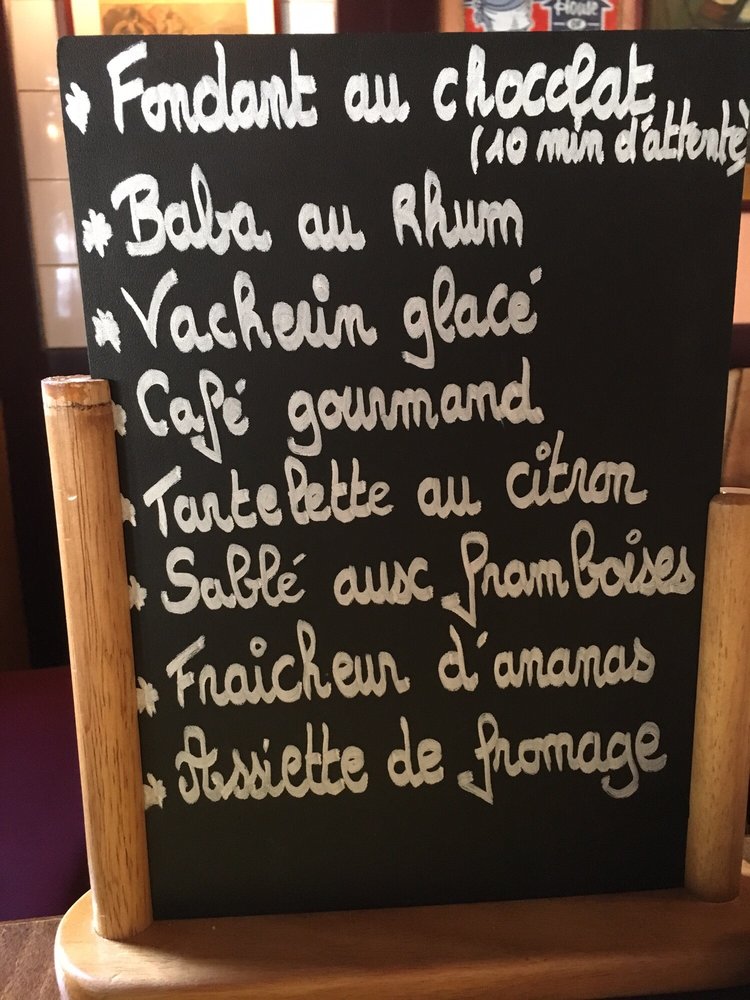 * Fondant au chocolat
(10 min d'attente)
* Baba au Rhum
* Vacherin glacé
* Café gourmand
* Tartelette au citron
* Sablé aux framboises
* Fraîcheur d'ananas
* Assiette de fromage